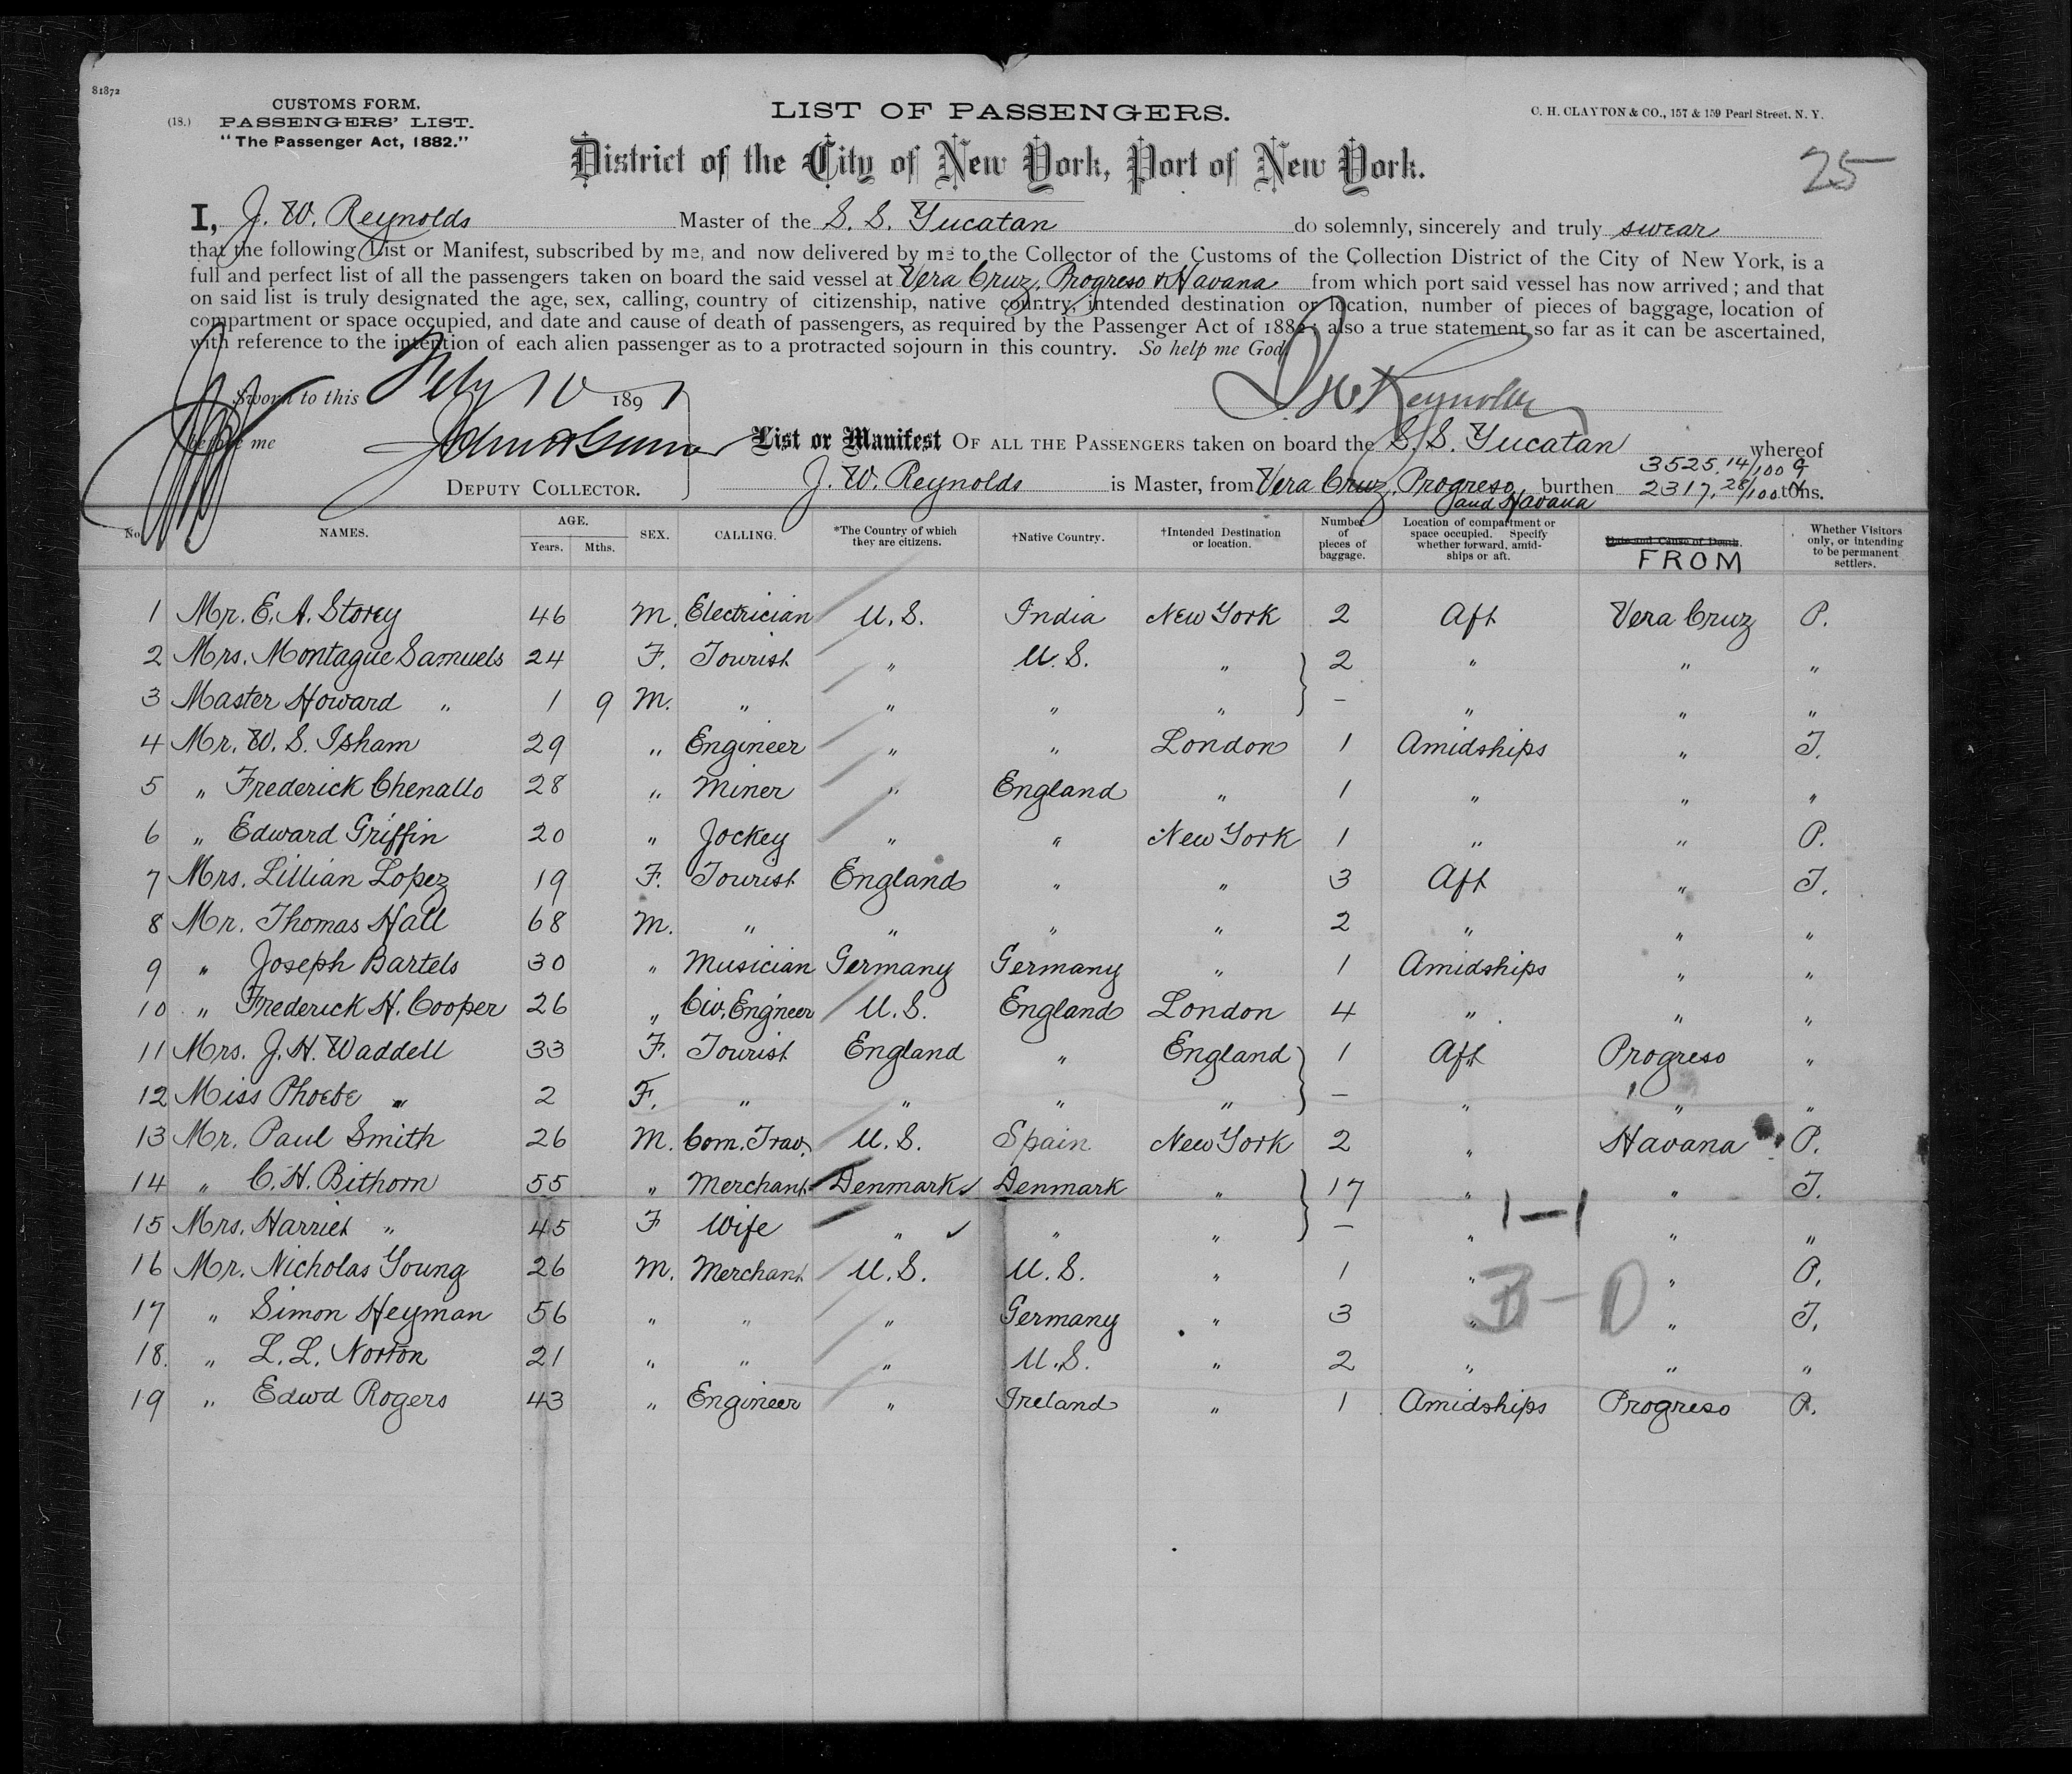 81872
CUSTOMS FORM.
(18.) PASSENGERS' LIST.
"The Passenger Act, 1882."
LIST OF PASSENGERS.
C. H. CLAYTON & CO., 157 & 159 Pearl Street, N. Y.
District of the City of New York, Port of New York.
25
I, J. W. Reynolds Master of the S. S. Yucatan do solemnly, sincerely and truly swear
that the following List or Manifest, subscribed by me, and now delivered by me to the Collector of the Customs of the Collection District of the City of New York, is a
full and perfect list of all the passengers taken on board the said vessel at Vera Cruz, Progreso & Havana from which port said vessel has now arrived; and that
on said list is truly designated the age, sex, calling, country of citizenship, native country, intended destination or location, number of pieces of baggage, location of
compartment or space occupied, and date and cause of death of passengers, as required by the Passenger Act of 1882; also a true statement so far as it can be ascertained,
with reference to the intention of each alien passenger as to a protracted sojourn in this country. So help me God.
Sworn to this Feby 10 1891
J W Reynolds
before me
DEPUTY COLLECTOR.
List or Manifest OF ALL THE PASSENGERS taken on board the S. S. Yucatan whereof
J. W. Reynolds is Master, from Vera Cruz, Progreso and Havana burthen 3525.14/100 G 2317.28/100 tons.
No. NAMES. AGE. Years. Mths. SEX. CALLING. *The Country of which they are citizens. †Native Country. †Intended Destination or location. Number of pieces of baggage. Location of compartment or space occupied. Specify whether forward, amidships or aft. Date and Cause of Death. FROM Whether Visitors only, or intending to be permanent settlers.
1 Mr. E. A. Storey 46 M. Electrician U. S. India New York 2 Aft Vera Cruz P.
2 Mrs. Montague Samuels 24 F. Tourist " U. S. " 2 " " "
3 Master Howard " 1 9 M. " " " " – " " "
4 Mr. W. S. Isham 29 " Engineer " " London 1 Amidships " T.
5 " Frederick Chenallo 28 " Miner " England " 1 " " "
6 " Edward Griffin 20 " Jockey " " New York 1 " " P.
7 Mrs. Lillian Lopez 19 F. Tourist England " " 3 Aft " T.
8 Mr. Thomas Hall 68 M. " " " " 2 " " "
9 " Joseph Bartels 30 " Musician Germany Germany " 1 Amidships " "
10 " Frederick H. Cooper 26 " Civ. Engineer U. S. England London 4 " " "
11 Mrs. J. H. Waddell 33 F. Tourist England " England 1 Aft Progreso "
12 Miss Phoebe " 2 F. " " " " – " " "
13 Mr. Paul Smith 26 M. Com. Trav. U. S. Spain New York 2 " Havana P.
14 " C. H. Bithorn 55 " Merchant Denmark Denmark " 17 " " T.
15 Mrs. Harriet " 45 F Wife " " " – " " "
1–1
16 Mr. Nicholas Young 26 M. Merchant U. S. U. S. " 1 " " P.
17 " Simon Heyman 56 " " " Germany " 3 " " T.
18. " L. L. Norton 21 " " " U. S. " 2 " " "
19 " Edwd Rogers 43 " Engineer " Ireland " 1 Amidships Progreso P.